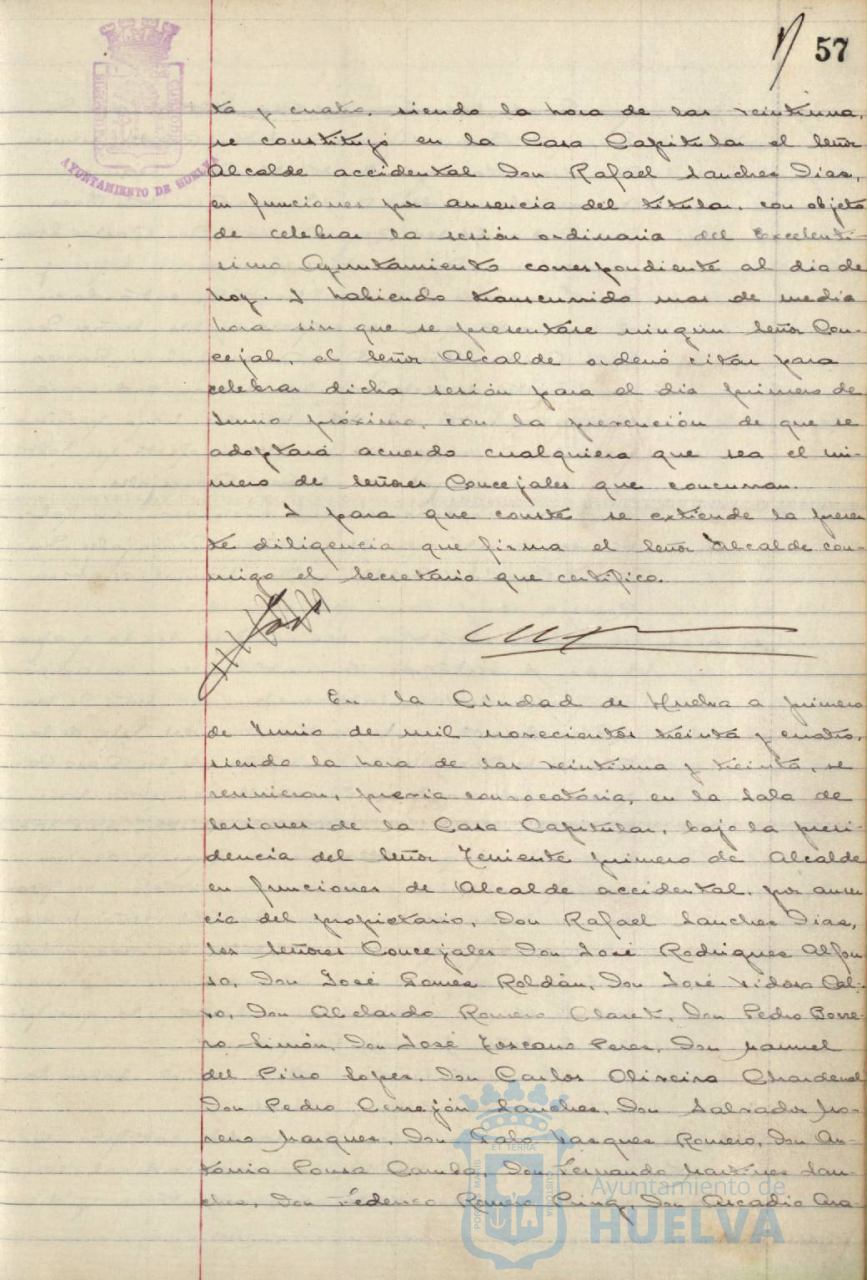 57
AYUNTAMIENTO DE HUELVA
ta y cuatro, siendo la hora de las veintiuna,
se constituyó en la Casa Capitular el Señor
Alcalde accidental Don Rafael Sanchez Diaz,
en funciones por ausencia del titular, con objeto
de celebrar la sesión ordinaria del Excelentí-
simo Ayuntamiento correspondiente al dia de
hoy. Y habiendo transcurrido mas de media
hora sin que se presentase ningún Señor Con-
cejal, el Señor Alcalde ordenó citar para
celebrar dicha sesión para el dia primero de
Junio próximo, con la prevención de que se
adoptará acuerdo cualquiera que sea el nú-
mero de Señores Concejales que concurran.
Y para que conste se extiende la presen
te diligencia que firma el Señor Alcalde con-
migo el Secretario que certifico.
En la Ciudad de Huelva a primero
de Junio de mil novecientos treinta y cuatro,
siendo la hora de las veintiuna y treinta, se
reunieron, previa convocatoria, en la Sala de
Sesiones de la Casa Capitular, bajo la presi-
dencia del Señor Teniente primero de Alcalde
en funciones de Alcalde accidental, por ausen
cia del propietario, Don Rafael Sanchez Diaz,
los Señores Concejales Don José Rodriguez Alfon
so, Don José Gomez Roldán, Don José Vidosa Cal-
vo, Don Abelardo Romero Claret, Don Pedro Borre-
ro Limón, Don José Toscano Perez, Don Manuel
del Pino Lopez, Don Carlos Oliveira Chardenal
Don Pedro Cerrejón Sanchez, Don Salvador Mo-
reno Marquez, Don Galo Vazquez Romero, Don An-
tonio Ponsa Camba, Don Fernando Martinez San-
chez, Don Federico Romero Don Arcadio Ara-
Ayuntamiento de
HUELVA